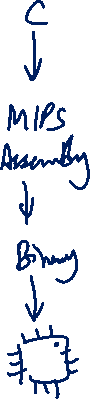 C
MIPS
Assembly
Binary